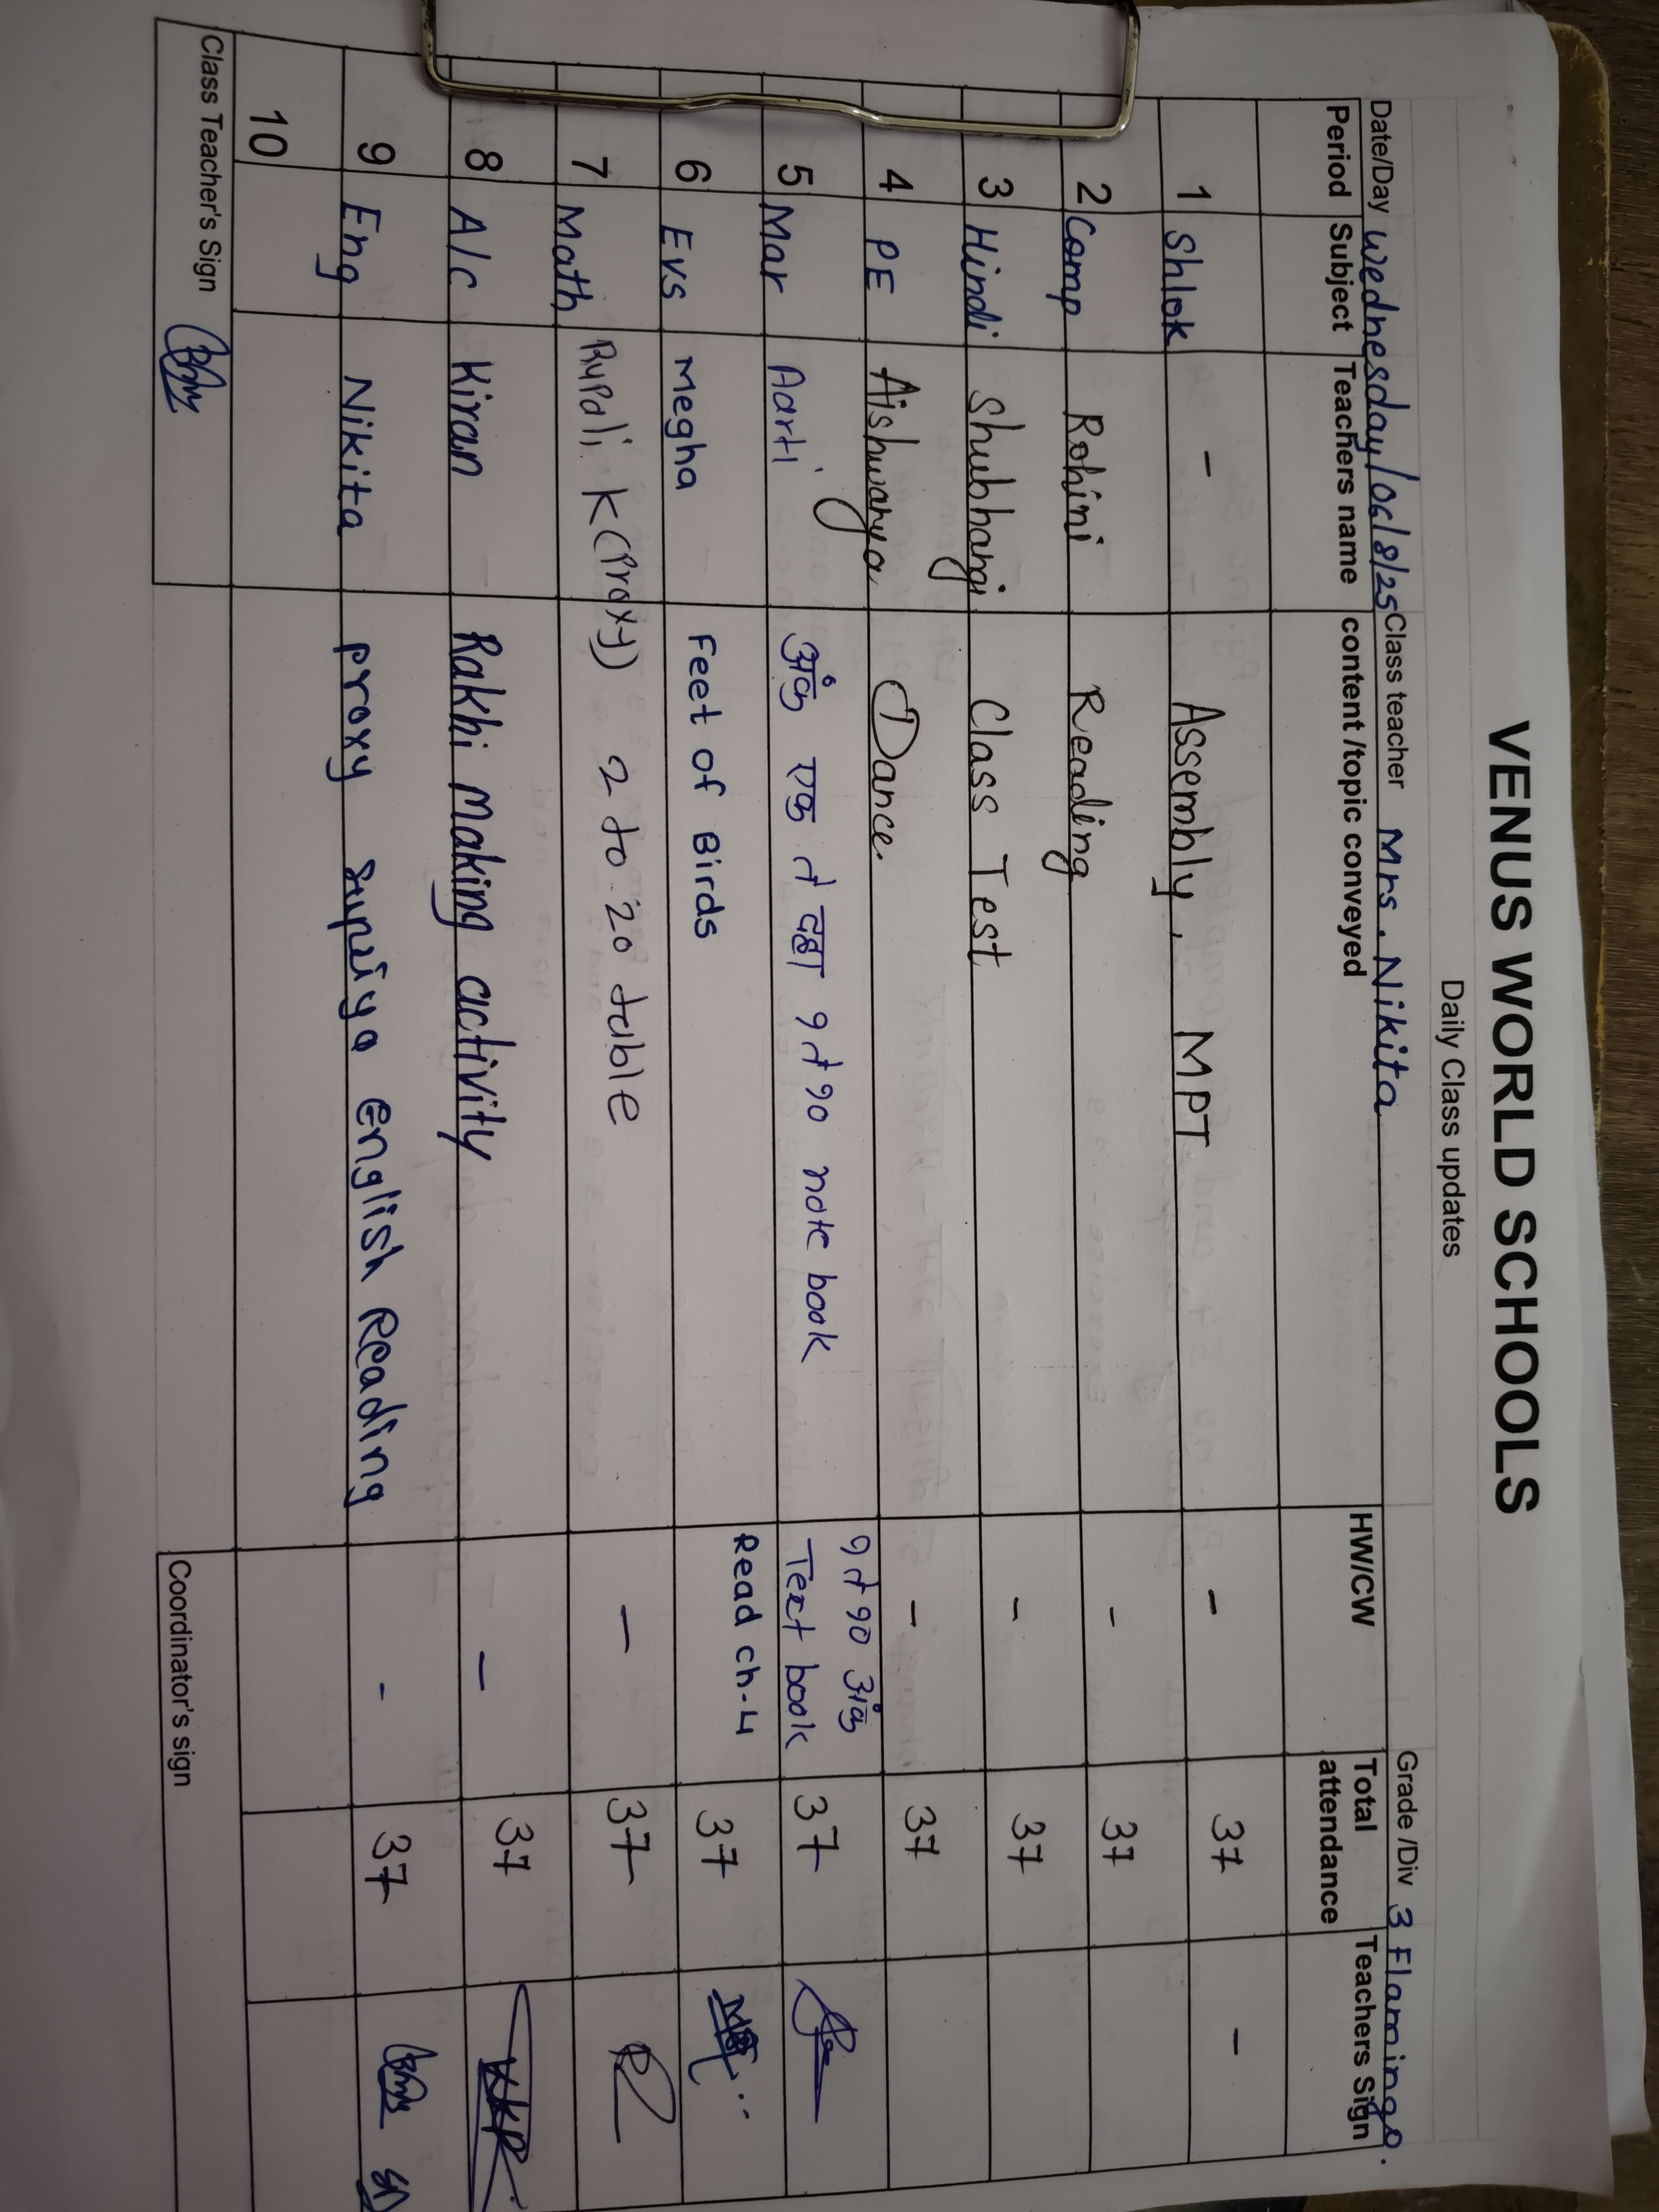 VENUS WORLD SCHOOLS
Daily Class updates
Date/Day Wednesday/06/8/25 Class teacher Mrs. Nikita Grade /Div 3 Flamingo.
Period Subject Teachers name content /topic conveyed HW/CW Total attendance Teachers Sign
1 Shlok - Assembly, MPT - 37 -
2 Comp Rohini Reading - 37
3 Hindi Shubhangi Class Test - 37
4 PE Aishwarya Dance. - 37
5 Mar Aarti अंक एक ते दहा १ ते १० note book १ ते १० अंक Text book 37
6 Evs Megha Feet of Birds Read ch-4 37
7 Math Rupali K (Proxy) 2 to 20 table - 37
8 A/c Kiran Rakhi Making activity - 37
9 Eng Nikita proxy Supriya english Reading - 37
10
Class Teacher's Sign Coordinator's sign